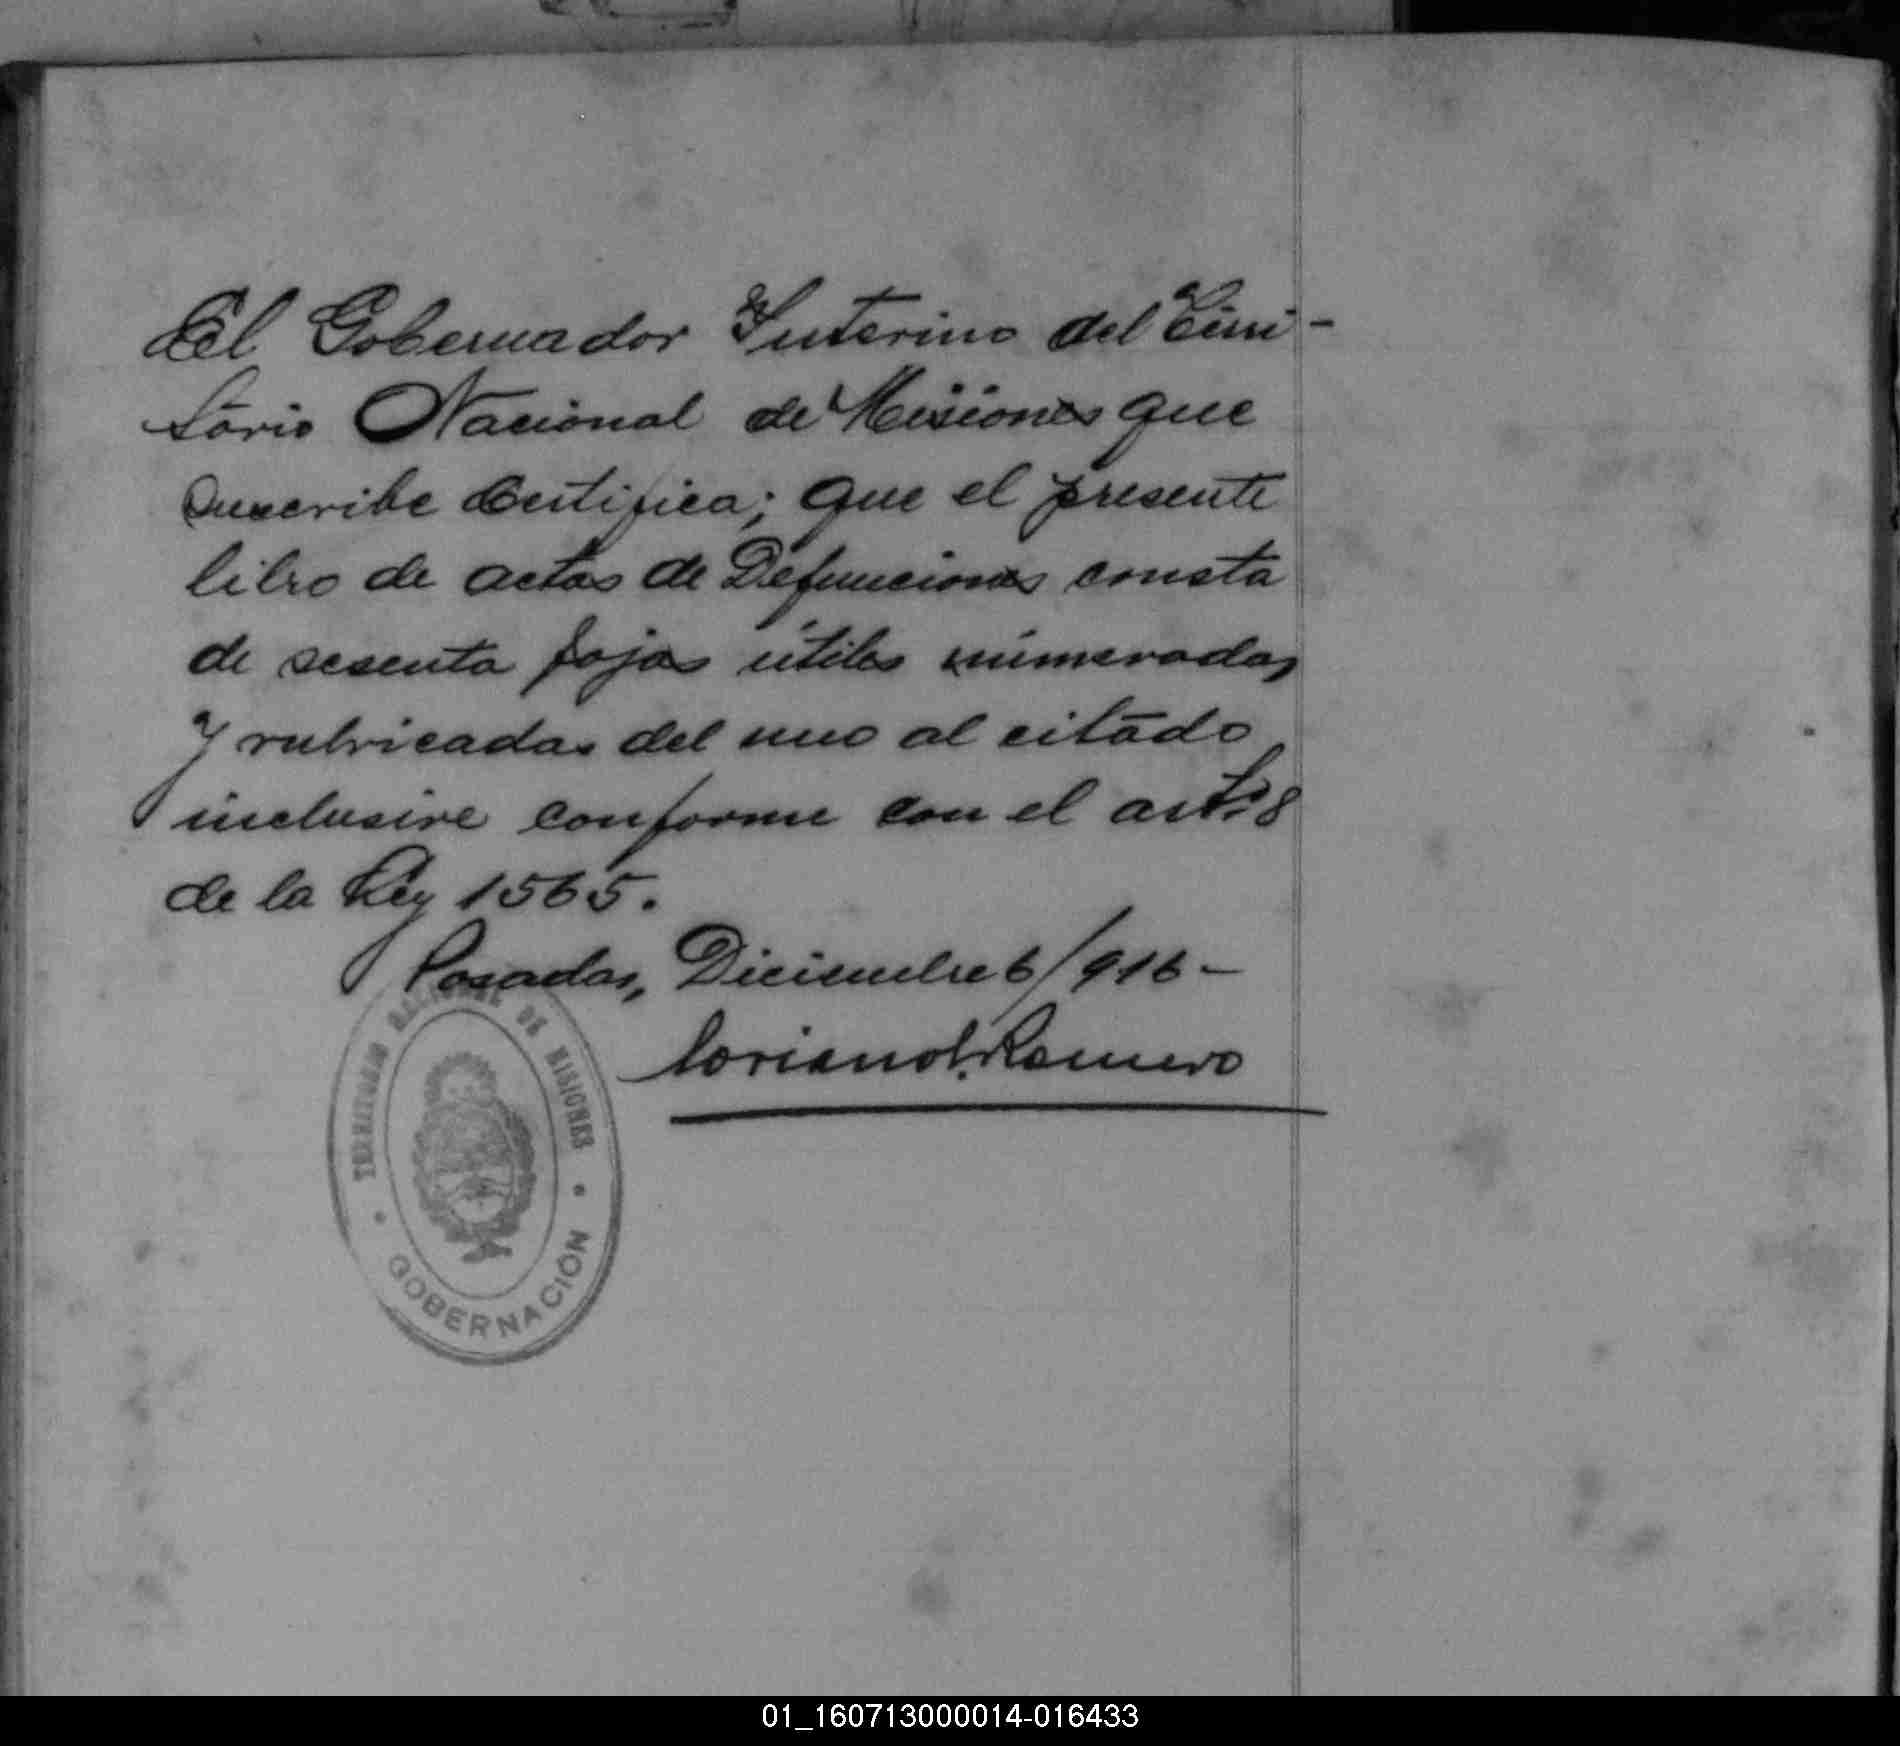 El Gobernador Interino del Terri-
torio Nacional de Misiones que
suscribe Certifica; que el presente
libro de actas de Defunciones consta
de sesenta fojas útiles númeradas
y rubricadas del uno al citado
inclusive conforme con el art. 8
de la Ley 1565.
Posadas, Diciembre 6/916-
Romero
TERRITORIO NACIONAL DE MISIONES
GOBERNACIÓN
01_160713000014-016433